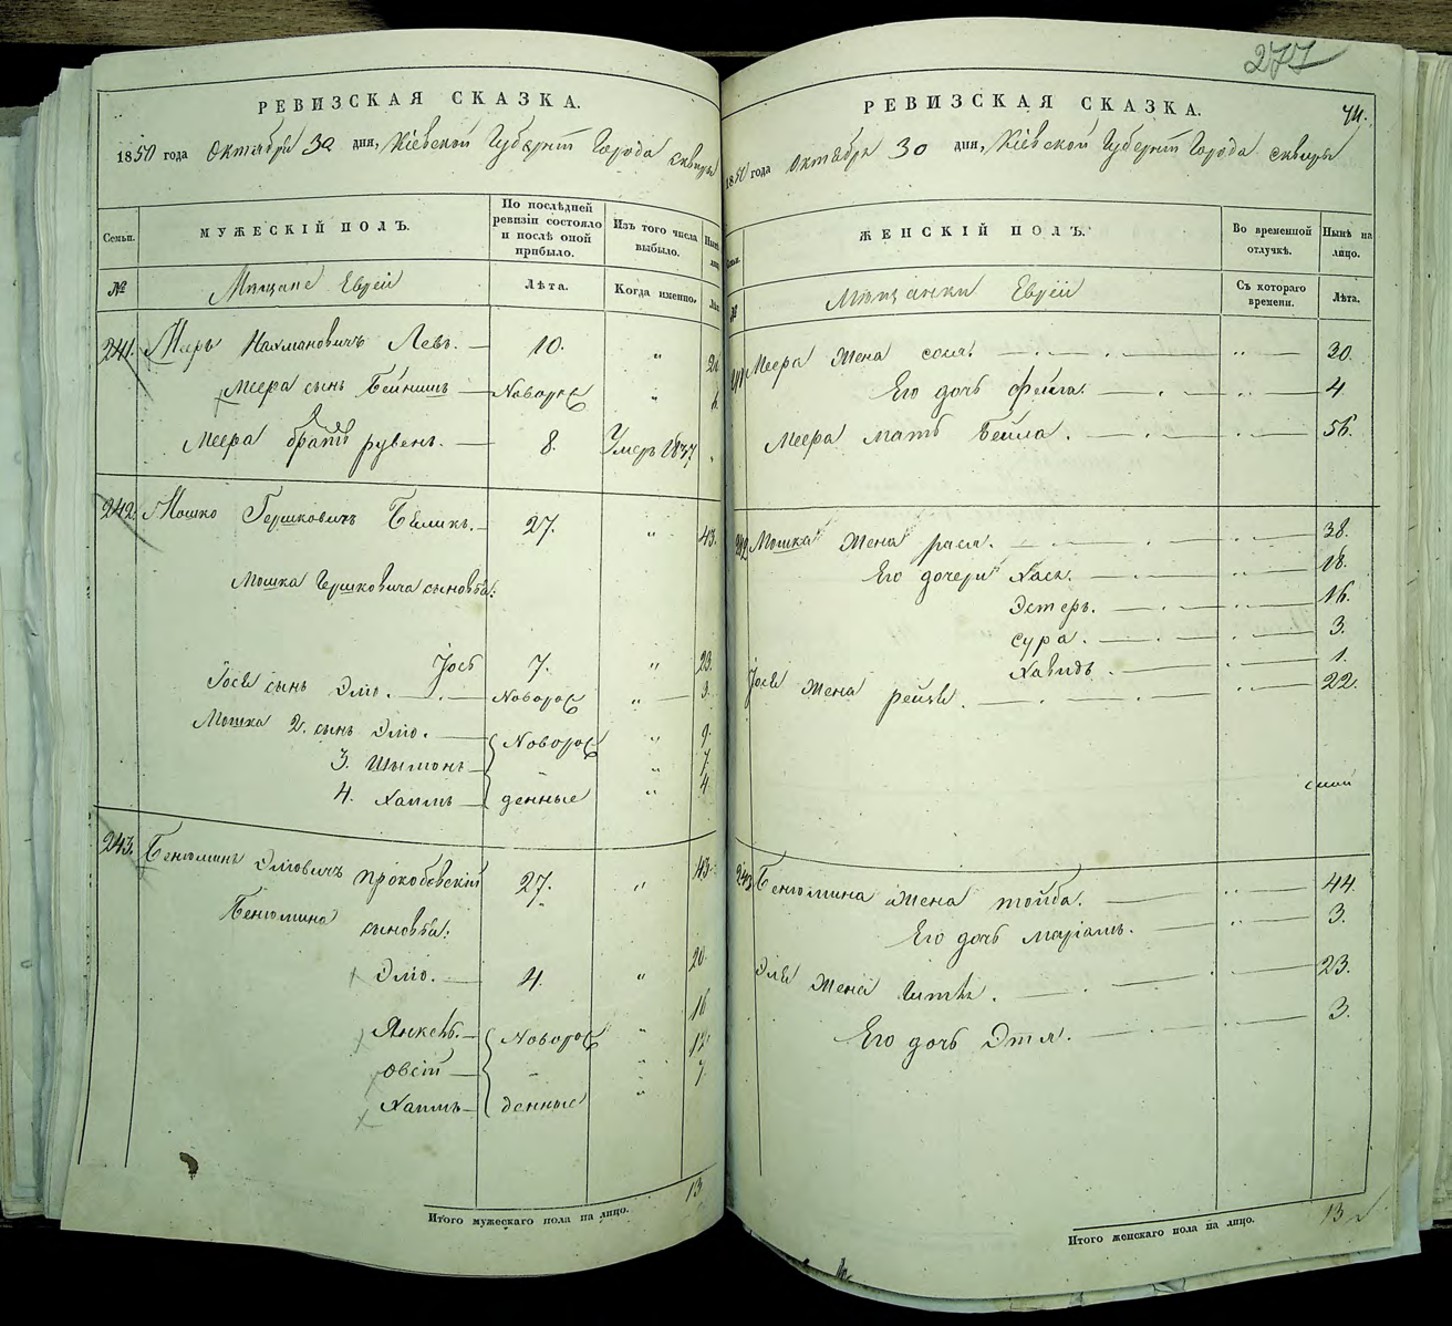 РЕВИЗСКАЯ СКАЗКА.
1850 года Октября 30 дня, Кіевской Губерніи Города Сквиры
Семьи.
МУЖЕСКІЙ ПОЛЪ.
По послѣдней ревизіи состояло и послѣ оной прибыло.
Изъ того числа выбыло.
№
Мѣщане Евреи
Лѣта.
Когда именно.
241. Мееръ Нахмановичъ Левъ. 10. "
Меера сынъ Бейнишъ Новорож "
Меера братъ рувенъ. 8. Умеръ 1837
242. Мошко Гершковичъ Бѣликъ. 27. " 43.
Мошка Гершковича сыновья:
Іось 7. " 23.
Іося сынъ Эліо. Новорож " 3.
Мошка 2. сынъ Эліо. Новорож " 9.
3. Шымонъ " 7.
4. Хаимъ денные " 4.
243. Бенюминъ Эліовичъ 27. " 43.
Бенюмина сыновья:
Эліо. 4. " 20.
Янкель. Новорож " 16
Овсій "
Хаимъ денные " 7.
13
Итого мужескаго пола на лицо.
277
РЕВИЗСКАЯ СКАЗКА.
1850 года Октября 30 дня, Кіевской Губерніи Города Сквиры
ЖЕНСКІЙ ПОЛЪ.
Во временной отлучкѣ.
Нынѣ на лицо.
№
Мѣщанки Евреи
Съ котораго времени.
Лѣта.
Меера Жена соня. 30.
Его дочь фейга. 4.
Меера мать бейла. 56.
242 Мошка Жена рася. 38.
Его дочери Хася. 18.
Эстеръ. 16.
сура. 3.
1.
Іося Жена рейзя. 22.
243 Бенюмина Жена тойба. 44.
Его дочь маріамъ. 3.
Эля Жена 23.
Его дочь Этля. 3.
13
Итого женскаго пола на лицо.